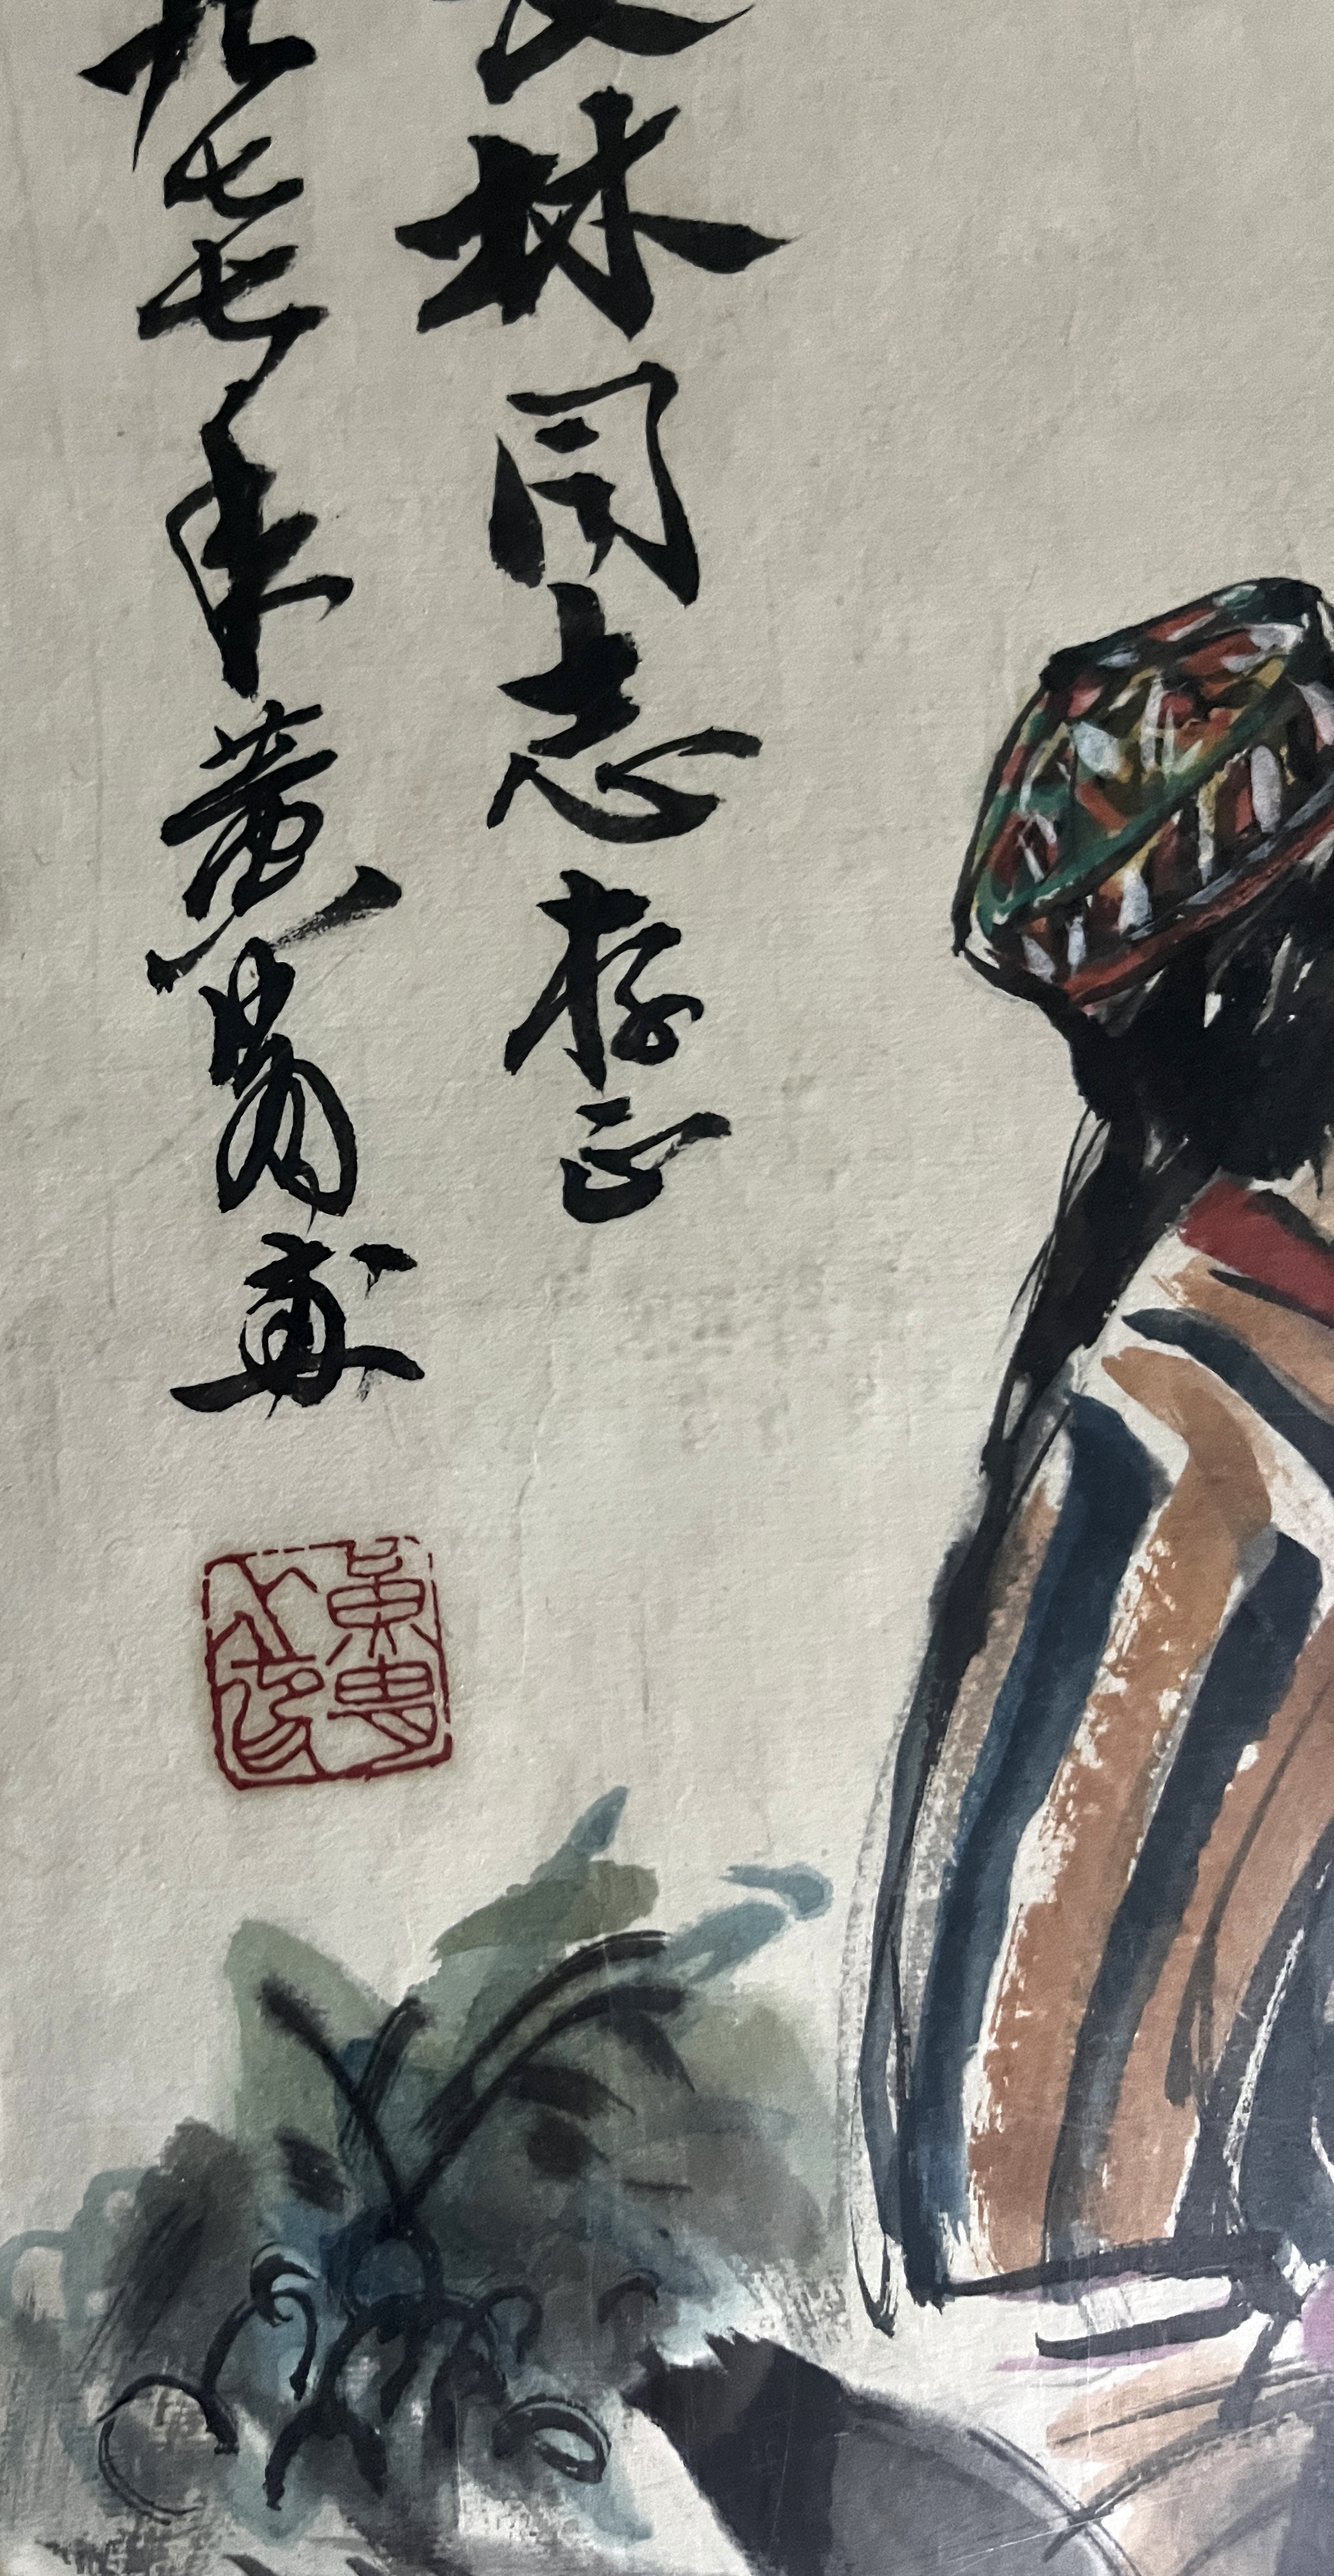 林同志存正
九七七年黄胄画
黄胄之印